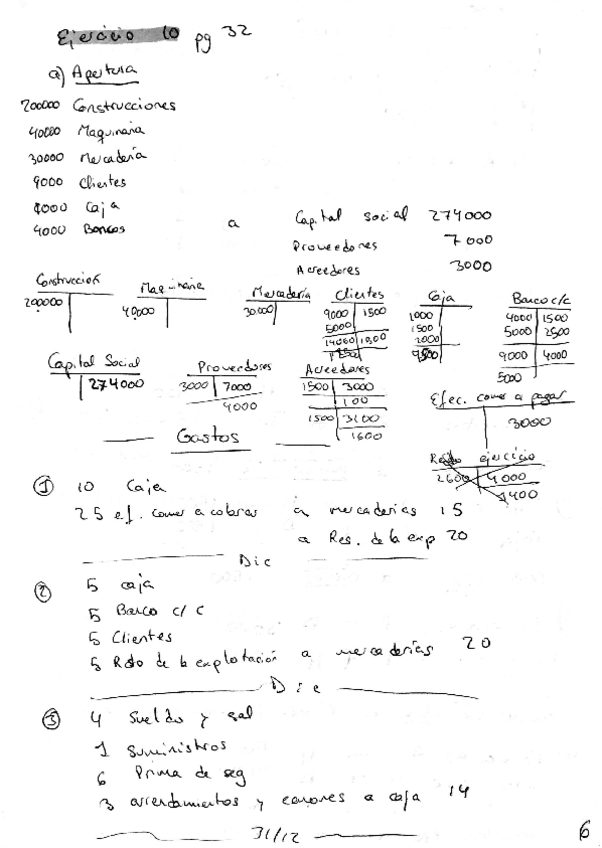 Ejercicio 10 pg 32
a) Apertura
200000 Construcciones
40000 Maquinaria
30000 Mercadería
9000 Clientes
1000 Caja
4000 Bancos a Capital social 274000
Proveedores 7000
Acreedores 3000
Construccion Maquinaria Mercadería Clientes Caja Banco c/c
200000 40,000 30.000 9000 1500 1000 4000 1500
5000 1500 5000 2500
2000 9000 4000
5000
Capital Social Proveedores Acreedores
274000 3000 7000 1500 3000
4000 100
1500 3100
1600
Efec. comer a pagar
3000
Gastos
Rdo ejercicio
2600 4000
1400
① 10 Caja
25 ef. comer a cobrar a mercaderías 15
a Res. de la exp 20
Dic
② 5 caja
5 Banco c/c
5 Clientes
5 Rdto de la explotación a mercaderías 20
Dic
③ 4 Sueldo y sal
1 Suministros
6 Prima de seg
3 arrendamientos y canones a caja 14
31/12
6